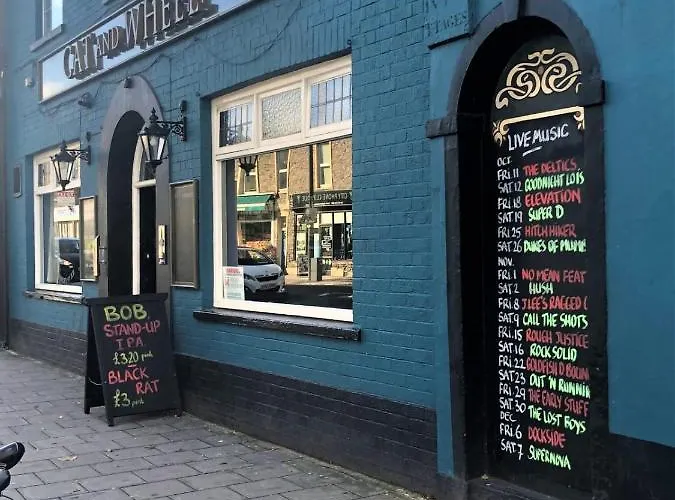 CAT AND WHEEL
BOB
STAND-UP
I.P.A.
£3.20 pint
BLACK
RAT
£3 pint
LIVE MUSIC
OCT
FRI. 11 THE DELTICS
SAT 12 GOODNIGHT LOIS
FRI 18 ELEVATION
SAT 19 SUPER D
FRI 25 HITCH HIKER
SAT 26 DUKES OF
NOV.
FRI. 1 NO MEAN FEAT
SAT 2 HUSH
FRI. 8 J.LEE'S RAGGED
SAT. 9 CALL THE SHOTS
FRI. 15 ROUGH JUSTICE
SAT 16 ROCK SOLID
FRI. 22 GOLDFISH D
SAT 23 OUT 'N RUNNIN
FRI. 29 THE EARLY STUFF
SAT. 30 THE LOST BOYS
DEC
FRI. 6 DOCKSIDE
SAT. 7 SUPERNOVA